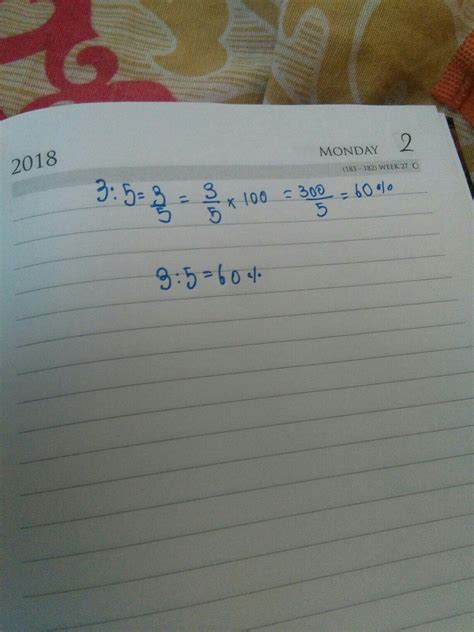 2018 MONDAY 2
(183 - 182) WEEK 27
3:5 = 3/5 = 3/5 × 100 = 300/5 = 60%
3:5 = 60%